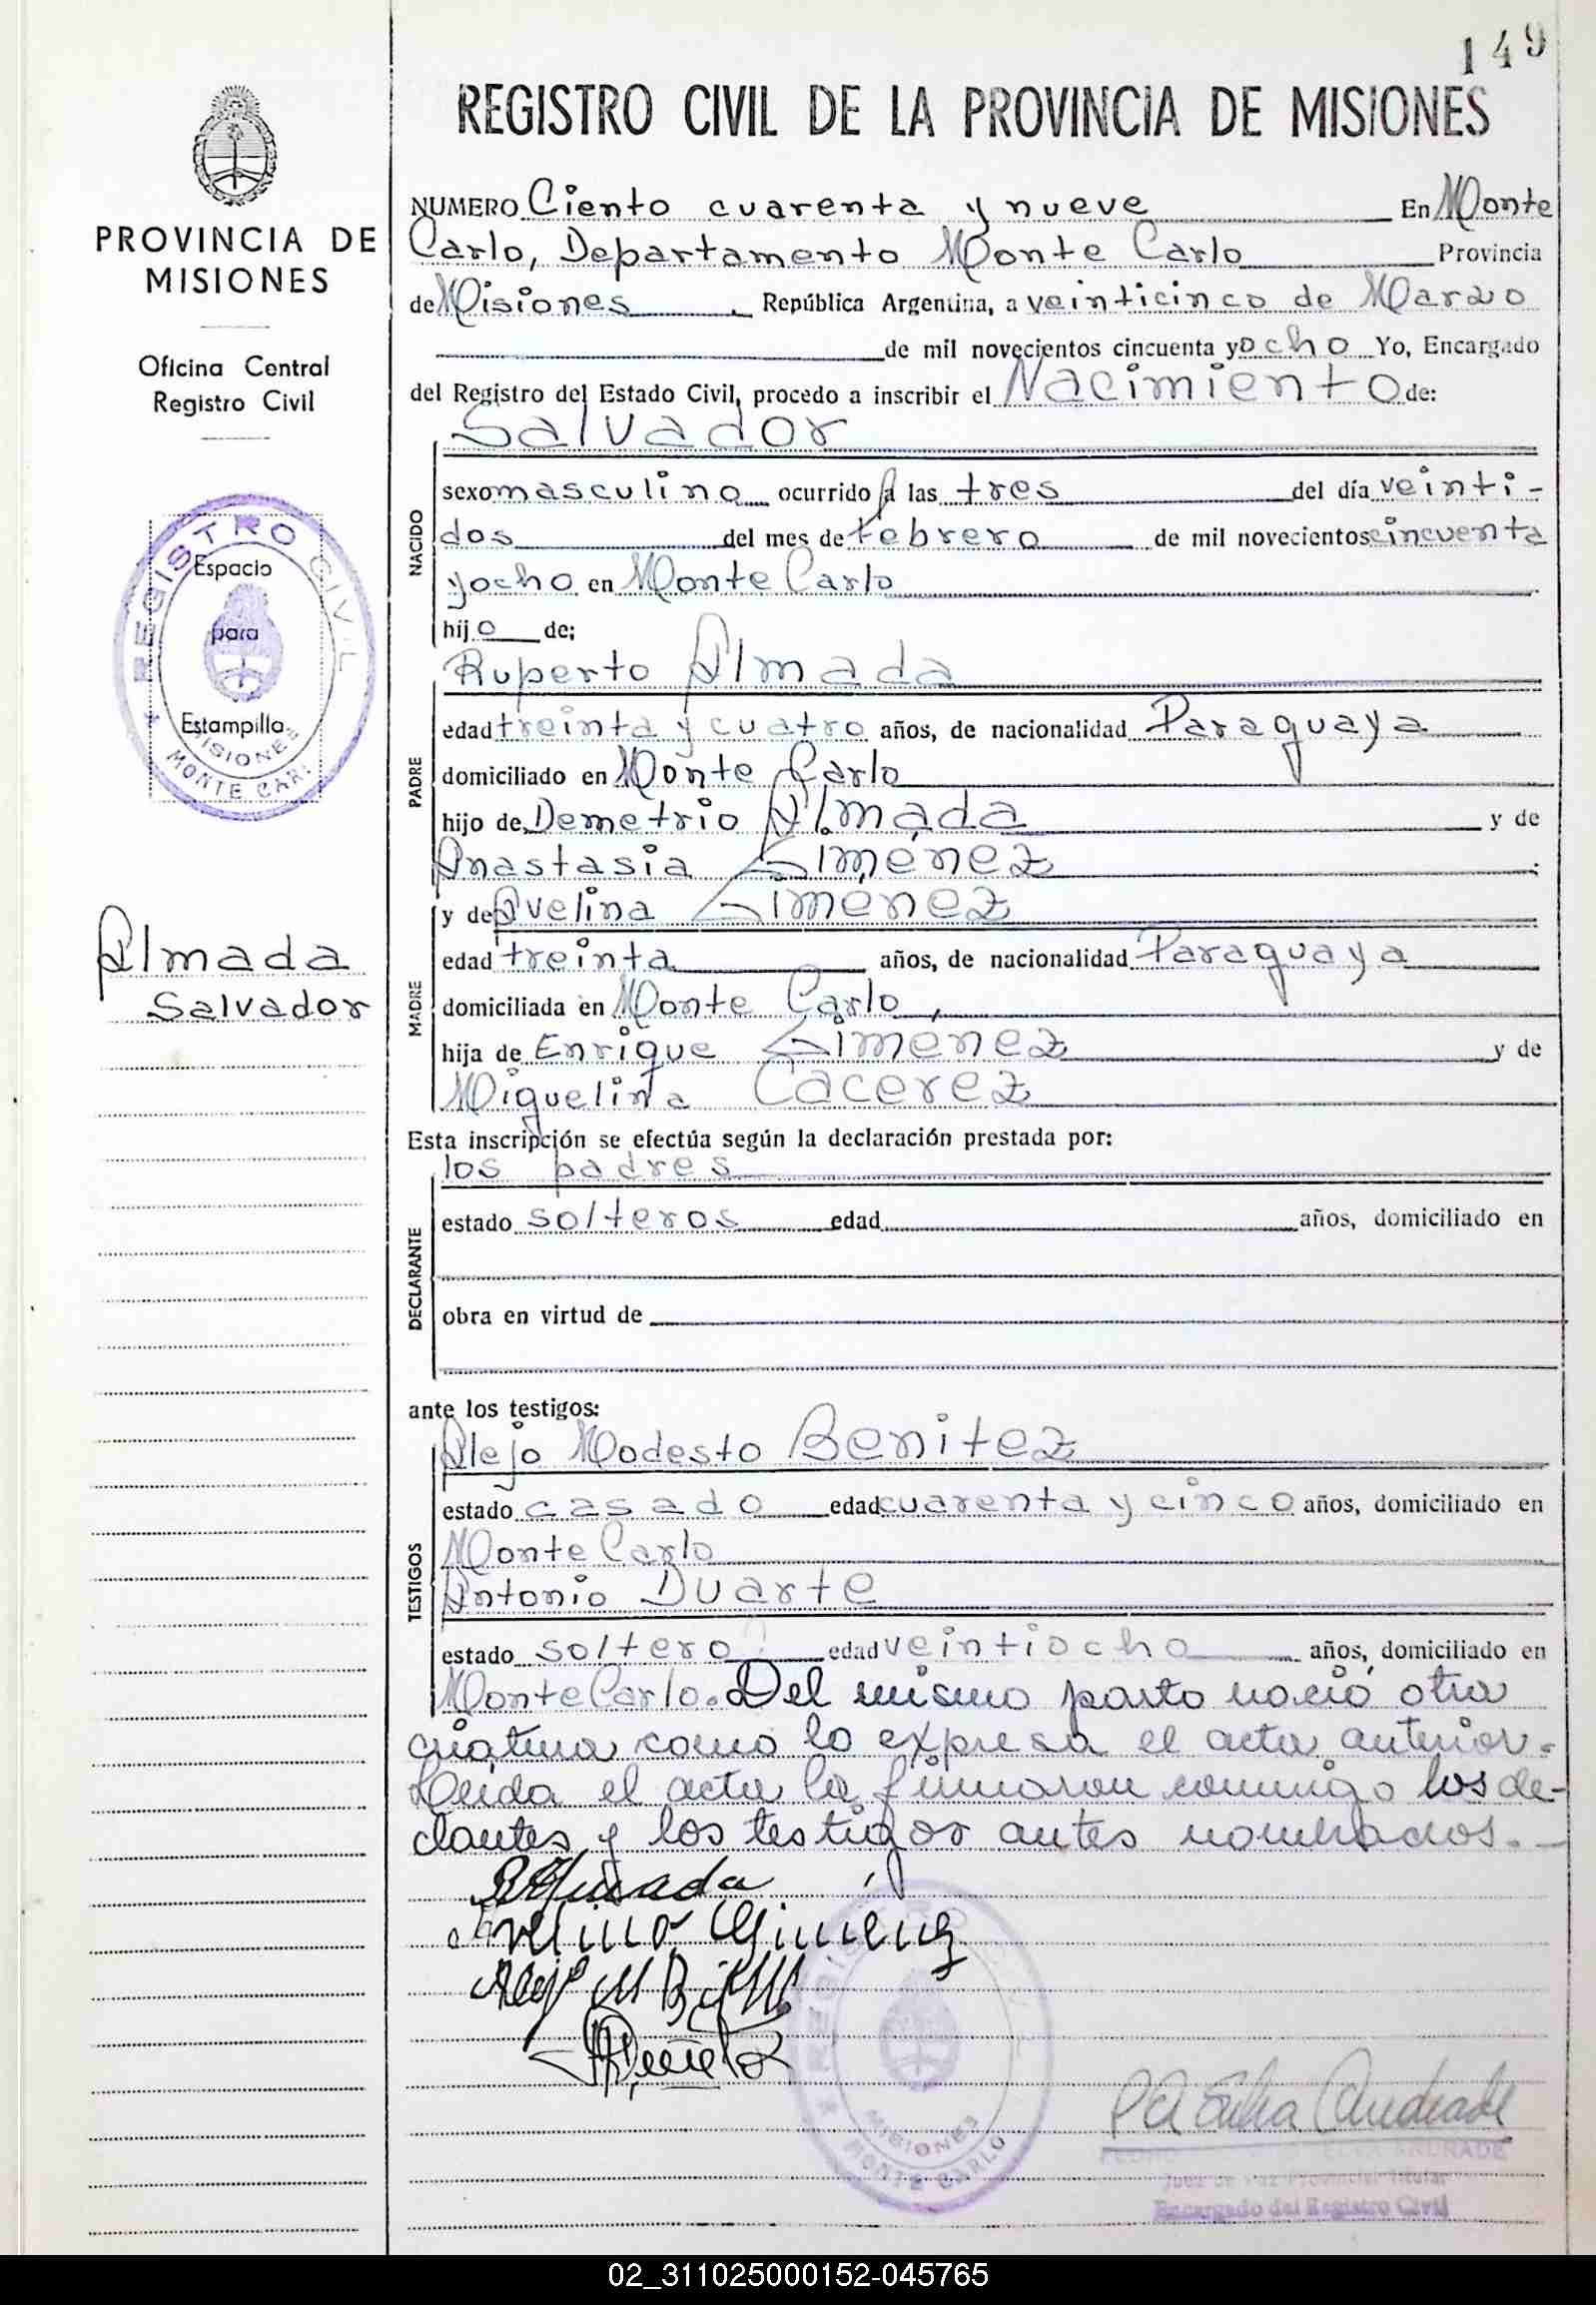 149
REGISTRO CIVIL DE LA PROVINCIA DE MISIONES
PROVINCIA DE
MISIONES
Oficina Central
Registro Civil
REGISTRO CIVIL
Espacio
para
Estampilla
MISIONES
MONTE CAR
Almada
Salvador
NUMERO Ciento cuarenta y nueve En Monte
Carlo, Departamento Monte Carlo Provincia
de Misiones, República Argentina, a veinticinco de Marzo
de mil novecientos cincuenta y ocho Yo, Encargado
del Registro del Estado Civil, procedo a inscribir el Nacimiento de:
NACIDO
Salvador
sexo masculino ocurrido a las tres del día veinti-
dos del mes de febrero de mil novecientos cincuenta
y ocho en Monte Carlo
hijo de;
PADRE
Ruperto Almada
edad treinta y cuatro años, de nacionalidad Paraguaya
domiciliado en Monte Carlo
hijo de Demetrio Almada y de
Anastasia Giménez;
MADRE
y de Avelina Giménez
edad treinta años, de nacionalidad Paraguaya
domiciliada en Monte Carlo,
hija de Enrique Giménez y de
Miguelina Cacerez
Esta inscripción se efectúa según la declaración prestada por:
DECLARANTE
los padres
estado solteros edad años, domiciliado en
obra en virtud de
ante los testigos:
TESTIGOS
Alejo Modesto Benitez
estado casado edad cuarenta y cinco años, domiciliado en
Monte Carlo
Antonio Duarte
estado soltero edad veintiocho años, domiciliado en
Monte Carlo. Del mismo parto nació otra
criatura como lo expresa el acta anterior.
Leida el acta la firmaron conmigo los de-
clantes y los testigos antes nombrados.
R Almada
Avelina Gimenez
REGISTRO
MISIONES
MONTE CARLO
Andrade
PEDRO SILVA ANDRADE
Juez de Paz Provincial Titular
Encargado del Registro Civil
02_311025000152-045765